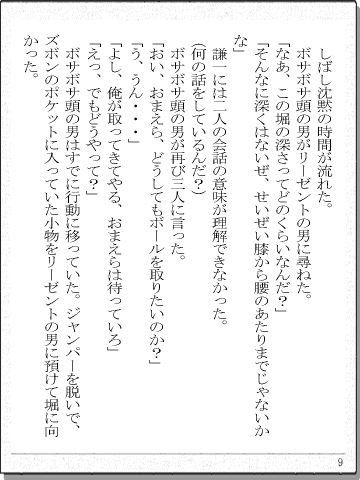 しばし沈黙の時間が流れた。
ボサボサ頭の男がリーゼントの男に尋ねた。
「なあ、この堀の深さってどのくらいなんだ？」
「そんなに深くはないぜ、せいぜい膝から腰のあたりまでじゃないか
な」
謙一には二人の会話の意味が理解できなかった。
(何の話をしているんだ？)
ボサボサ頭の男が再び三人に言った。
「おい、おまえら、どうしてもボールを取りたいのか？」
「う、うん・・・」
「よし、俺が取ってきてやる、おまえらは待っていろ」
「えっ、でもどうやって？」
ボサボサ頭の男はすでに行動に移っていた。ジャンパーを脱いで、
ズボンのポケットに入っていた小物をリーゼントの男に預けて堀に向
かった。
9